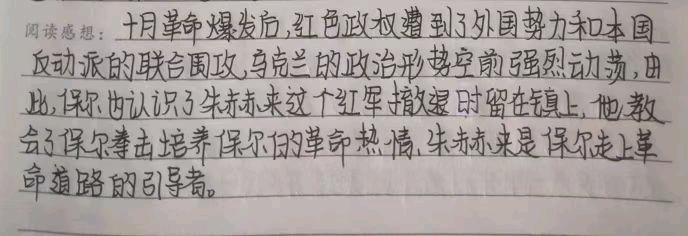 阅读感想：十月革命爆发后,红色政权遭到了外国势力和本国
反动派的联合围攻,乌克兰的政治形势空前强烈动荡,由
此,保尔也认识了朱赤赤来这个红军撤退时留在镇上,他教
会了保尔拳击培养保尔的革命热情,朱赫赤来是保尔走上革
命道路的引导者。